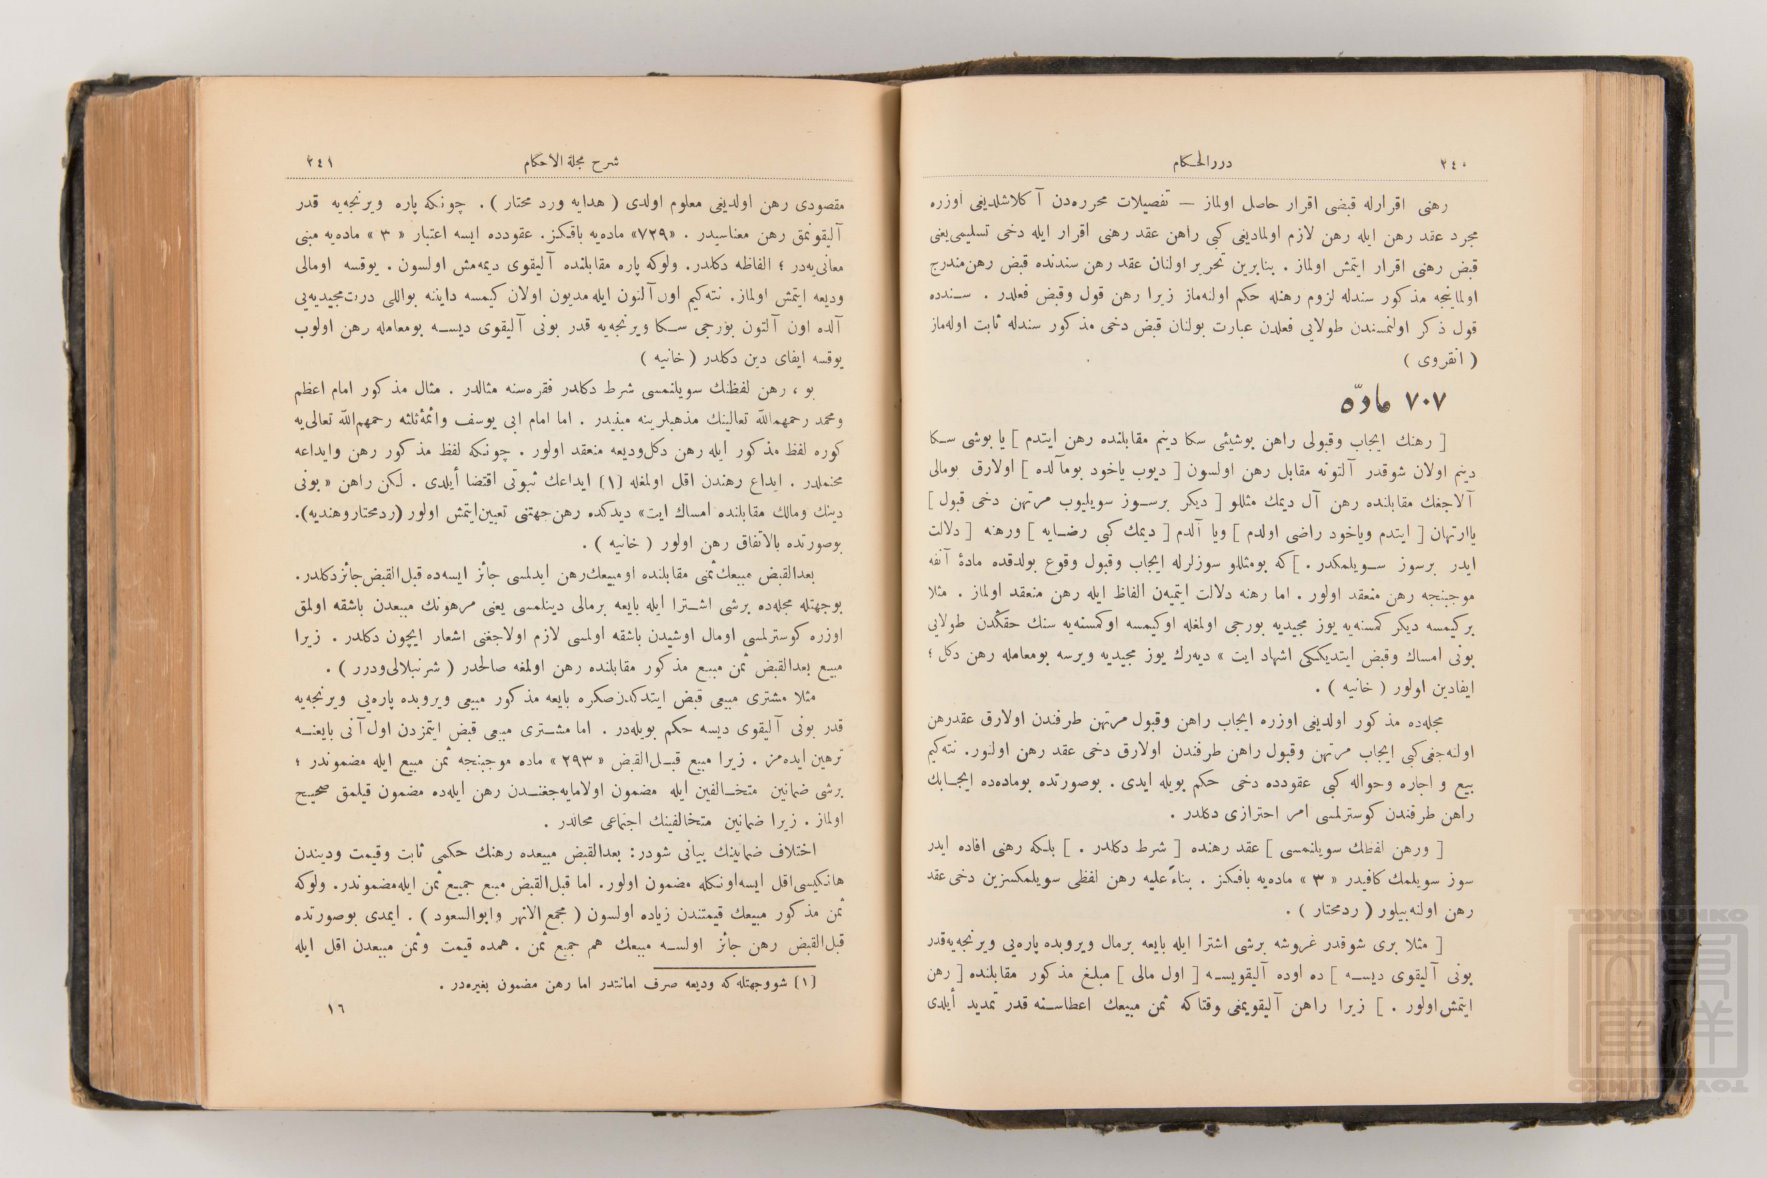 ٢٤٠
دررالحكام
رهنی اقرارله قبضی اقرار حاصل اولماز — تفصیلات محرره‌دن آكلاشلدیغی اوزره
مجرد عقد رهن ایله رهن لازم اولمادیغی كبی راهن عقد رهنی اقرار ایله دخی تسلیمی یعنی
قبض رهنی اقرار ایتمش اولماز . بنابرین تحریر اولنان عقد رهن سندنده قبض رهن مندرج
اولماینجه مذكور سندله لزوم رهنله حكم اولنه‌ماز زیرا رهن قول وقبض فعلدر . سندده
قول ذكر اولنمسندن طولایی فعلدن عبارت بولنان قبض دخی مذكور سندله ثابت اوله‌ماز
( انقروی )
٧٠٧ مادّه
[ رهنك ایجاب وقبولی راهن بوشیئی سكا دینم مقابلنده رهن ایتدم ] یا بوشی سكا
دینم اولان شوقدر آلتونه مقابل رهن اولسون [ دیوب یاخود بومآلده ] اولارق بومالی
آلاجغك مقابلنده رهن آل دیمك مثللو [ دیكر برسوز سویلیوب مرتهن دخی قبول ]
یاارتهان [ ایتدم ویاخود راضی اولدم ] ویا آلدم [ دیمك كبی رضایه ] ورهنه [ دلالت
ایدر برسوز سویلمكدر . ] كه بومثللو سوزلرله ایجاب وقبول وقوع بولدقده مادۀ آنفه
موجبنجه رهن منعقد اولور . اما رهنه دلالت ایتمیه‌ن الفاظ ایله رهن منعقد اولماز . مثلا
بركیمسه دیكر كمسنه‌یه یوز مجیدیه بورجی اولمغله اوكیمسه اوكمسنه‌یه سنك حقكدن طولایی
بونی امساك وقبض ایتدیككی اشهاد ایت » دیه‌رك یوز مجیدیه ویرسه بومعامله رهن دكل ؛
ایفادین اولور ( خانیه ) .
مجله‌ده مذكور اولدیغی اوزره ایجاب راهن وقبول مرتهن طرفندن اولارق عقدرهن
اولنه‌جغی كبی ایجاب مرتهن وقبول راهن طرفندن اولارق دخی عقد رهن اولنور. نته‌كیم
بیع و اجاره وحواله كبی عقودده دخی حكم بویله ایدی . بوصورتده بوماده‌ده ایجابك
راهن طرفندن كوسترلمسی امر احترازی دكلدر .
[ ورهن لفظك سویلنمسی ] عقد رهنده [ شرط دكلدر . ] بلكه رهنی افاده ایدر
سوز سویلمك كافیدر « ٣ » ماده‌یه باقیكز . بناءً علیه رهن لفظی سویلمكسزین دخی عقد
رهن اولنه‌بیلور ( ردمحتار ) .
[ مثلا بری شوقدر غروشه برشی اشترا ایله بایعه برمال ویروبده پاره‌یی ویرنجه‌یه‌قدر
بونی آلیقوی دیسه ] ده اوده آلیقویسه [ اول مالی ] مبلغ مذكور مقابلنده [ رهن
ایتمش اولور . ] زیرا راهن آلیقویمغی وقتاكه ثمن مبیعك اعطاسنه قدر تمدید أیلدی
شرح مجلة الاحكام
٢٤١
مقصودی رهن اولدیغی معلوم اولدی ( هدایه ورد محتار ) . چونكه پاره ویرنجه‌یه قدر
آلیقونمق رهن معناسیدر . «٧٢٩» ماده‌یه باقیكز. عقودده ایسه اعتبار « ٣ » ماده‌یه مبنی
معانی‌یه‌در ؛ الفاظه دكلدر. ولوكه پاره مقابلنده آلیقوی دیمه‌مش اولسون . یوقسه اومالی
ودیعه ایتمش اولماز. نته‌كیم اون آلتون ایله مدیون اولان كیمسه داینه بواللی درت مجیدیه‌یی
آلده اون آلتون بورجمی سكا ویرنجه‌یه قدر بونی آلیقوی دیسه بومعامله رهن اولوب
یوقسه ایفای دین دكلدر ( خانیه )
بو ، رهن لفظنك سویلنمسی شرط دكلدر فقره‌سنه مثالدر . مثال مذكور امام اعظم
ومحمد رحمهم‌الله تعالینك مذهبلرینه مبنیدر . اما امام ابی یوسف وائمۀ ثلثه رحمهم‌الله تعالی‌یه
كوره لفظ مذكور ایله رهن دكل ودیعه منعقد اولور . چونكه لفظ مذكور رهن وایداعه
محتملدر . ایداع رهندن اقل اولمغله [١] ایداعك ثبوتی اقتضا أیلدی . لكن راهن « بونی
دینك ومالك مقابلنده امساك ایت» دیدكده رهن جهتنی تعیین ایتمش اولور (ردمحتاروهندیه).
بوصورتده بالاتفاق رهن اولور ( خانیه ) .
بعدالقبض مبیعك ثمنی مقابلنده او مبیعك رهن ایدلمسی جائز ایسه‌ده قبل القبض جائز دكلدر.
بوجهتله مجله‌ده برشی اشترا ایله بایعه برمالی دینلمسی یعنی مرهونك مبیعدن باشقه اولمق
اوزره كوسترلمسی اومال اوشیدن باشقه اولمسی لازم اولاجغنی اشعار ایچون دكلدر . زیرا
مبیع بعدالقبض ثمن مبیع مذكور مقابلنده رهن اولمغه صالحدر ( شرنبلالی ودرر ) .
مثلا مشتری مبیعی قبض ایتدكدن صكره بایعه مذكور مبیعی ویروبده پاره‌یی ویرنجه‌یه
قدر بونی آلیقوی دیسه حكم بویله‌در . اما مشتری مبیعی قبض ایتمزدن اول آنی بایعنه
ترهین ایده‌مز . زیرا مبیع قبل القبض « ٢٩٣ » ماده موجبنجه ثمن مبیع ایله مضموندر ؛
برشی ضمانین متخالفین ایله مضمون اولامایه‌جغندن رهن ایله‌ده مضمون قیلمق صحیح
اولماز . زیرا ضمانین متخالفینك اجتماعی محالدر .
اختلاف ضمانینك بیانی شودر: بعدالقبض مبیعده رهنك حكمی ثابت وقیمت ودیندن
هانكیسی اقل ایسه اونكله مضمون اولور. اما قبل القبض مبیع جمیع ثمن ایله مضموندر. ولوكه
ثمن مذكور مبیعك قیمتندن زیاده اولسون ( مجمع الانهر وابوالسعود ) . ایمدی بوصورتده
قبل القبض رهن جائز اولسه مبیعك هم جمیع ثمن . همده قیمت وثمن مبیعدن اقل ایله
[١] شووجهتله كه ودیعه صرف امانتدر اما رهن مضمون بغیره‌در .
١٦
TOYO BUNKO
東洋文庫
TOYO BUNKO